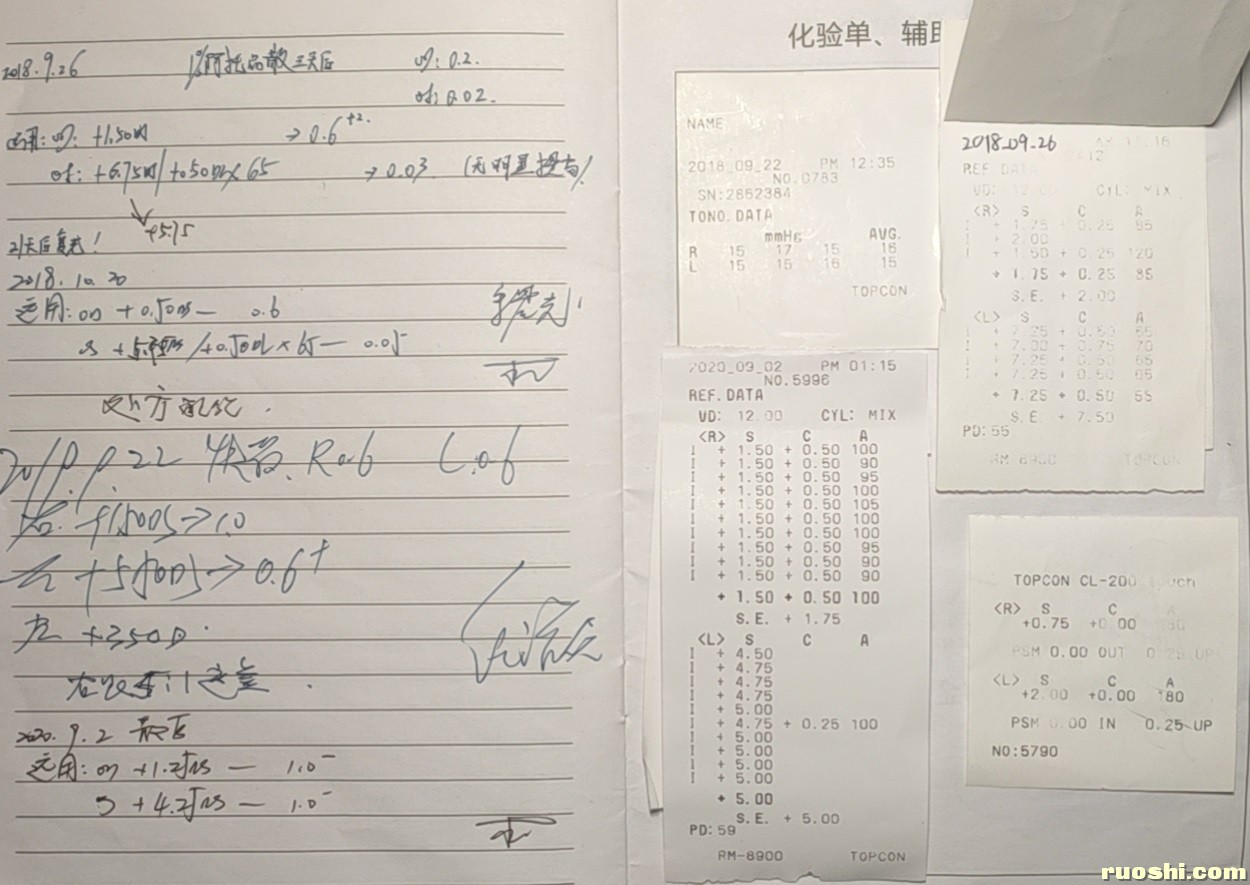 2018.9.26 1%阿托品散三天后 od: 0.2.
os: 0.02.
适用: od: +1.50DS → 0.6⁺².
os: +6.75DS/+0.50DC×65 → 0.03 (无明显提高)
+5.75
21天后复光!
2018.10.20
适用: od +0.50DS — 0.6
os /+0.50DC×65 — 0.05
处方配镜.
R 0.6 L 0.6
右 +1.50DS→1.0
左 +5.50DS→0.6⁺
左 +3.50D.
2020.9.2
适用: od +1.25DS — 1.0⁻
os +4.25DS — 1.0⁻
化验单、辅助
NAME
2018_09_22 PM 12:35
NO.0783
SN:2862384
TONO.DATA
mmHg AVG.
R 15 17 15 16
L 15 15 16 15
TOPCON
2020_09_02 PM 01:15
NO.5996
REF.DATA
VD: 12.00 CYL: MIX
<R> S C A
I + 1.50 + 0.50 100
I + 1.50 + 0.50 90
I + 1.50 + 0.50 95
I + 1.50 + 0.50 100
I + 1.50 + 0.50 105
I + 1.50 + 0.50 100
I + 1.50 + 0.50 100
I + 1.50 + 0.50 95
I + 1.50 + 0.50 90
I + 1.50 + 0.50 90
+ 1.50 + 0.50 100
S.E. + 1.75
<L> S C A
I + 4.50
I + 4.75
I + 4.75
I + 4.75
I + 5.00
I + 4.75 + 0.25 100
I + 5.00
I + 5.00
I + 5.00
I + 5.00
+ 5.00
S.E. + 5.00
PD:59
RM-8900 TOPCON
2018_09_26
REF.DATA
VD: 12.00 CYL: MIX
<R> S C A
I + 1.75 + 0.25 85
I + 2.00
I + 1.50 + 0.25 120
+ 1.75 + 0.25 85
S.E. + 2.00
<L> S C A
I + 7.25 + 0.50 55
I + 7.00 + 0.75 70
I + 7.25 + 0.50 65
I + 7.25 + 0.50 65
+ 7.25 + 0.50 55
S.E. + 7.50
PD:55
RM-8900 TOPCON
TOPCON CL-200
<R> S C A
+0.75 +0.00 180
PSM 0.00 OUT 0.25 UP
<L> S C A
+2.00 +0.00 180
PSM 0.00 IN 0.25 UP
NO:5790
ruoshi.com